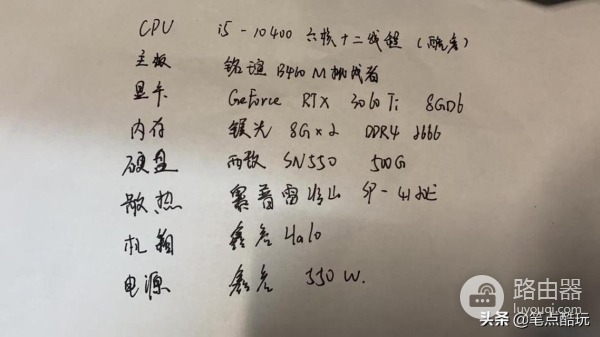 CPU i5-10400 六核十二线程 (酷睿)
主板 铭瑄 B460M 挑战者
显卡 GeForce RTX 3060Ti 8GD6
内存 镁光 8G×2 DDR4 2666
硬盘 西数 SN550 500G
散热 赛普雷 SP-
机箱 鑫谷 Halo
电源 鑫谷 550W.
路由器
luyouqi.com
头条 @笔点酷玩